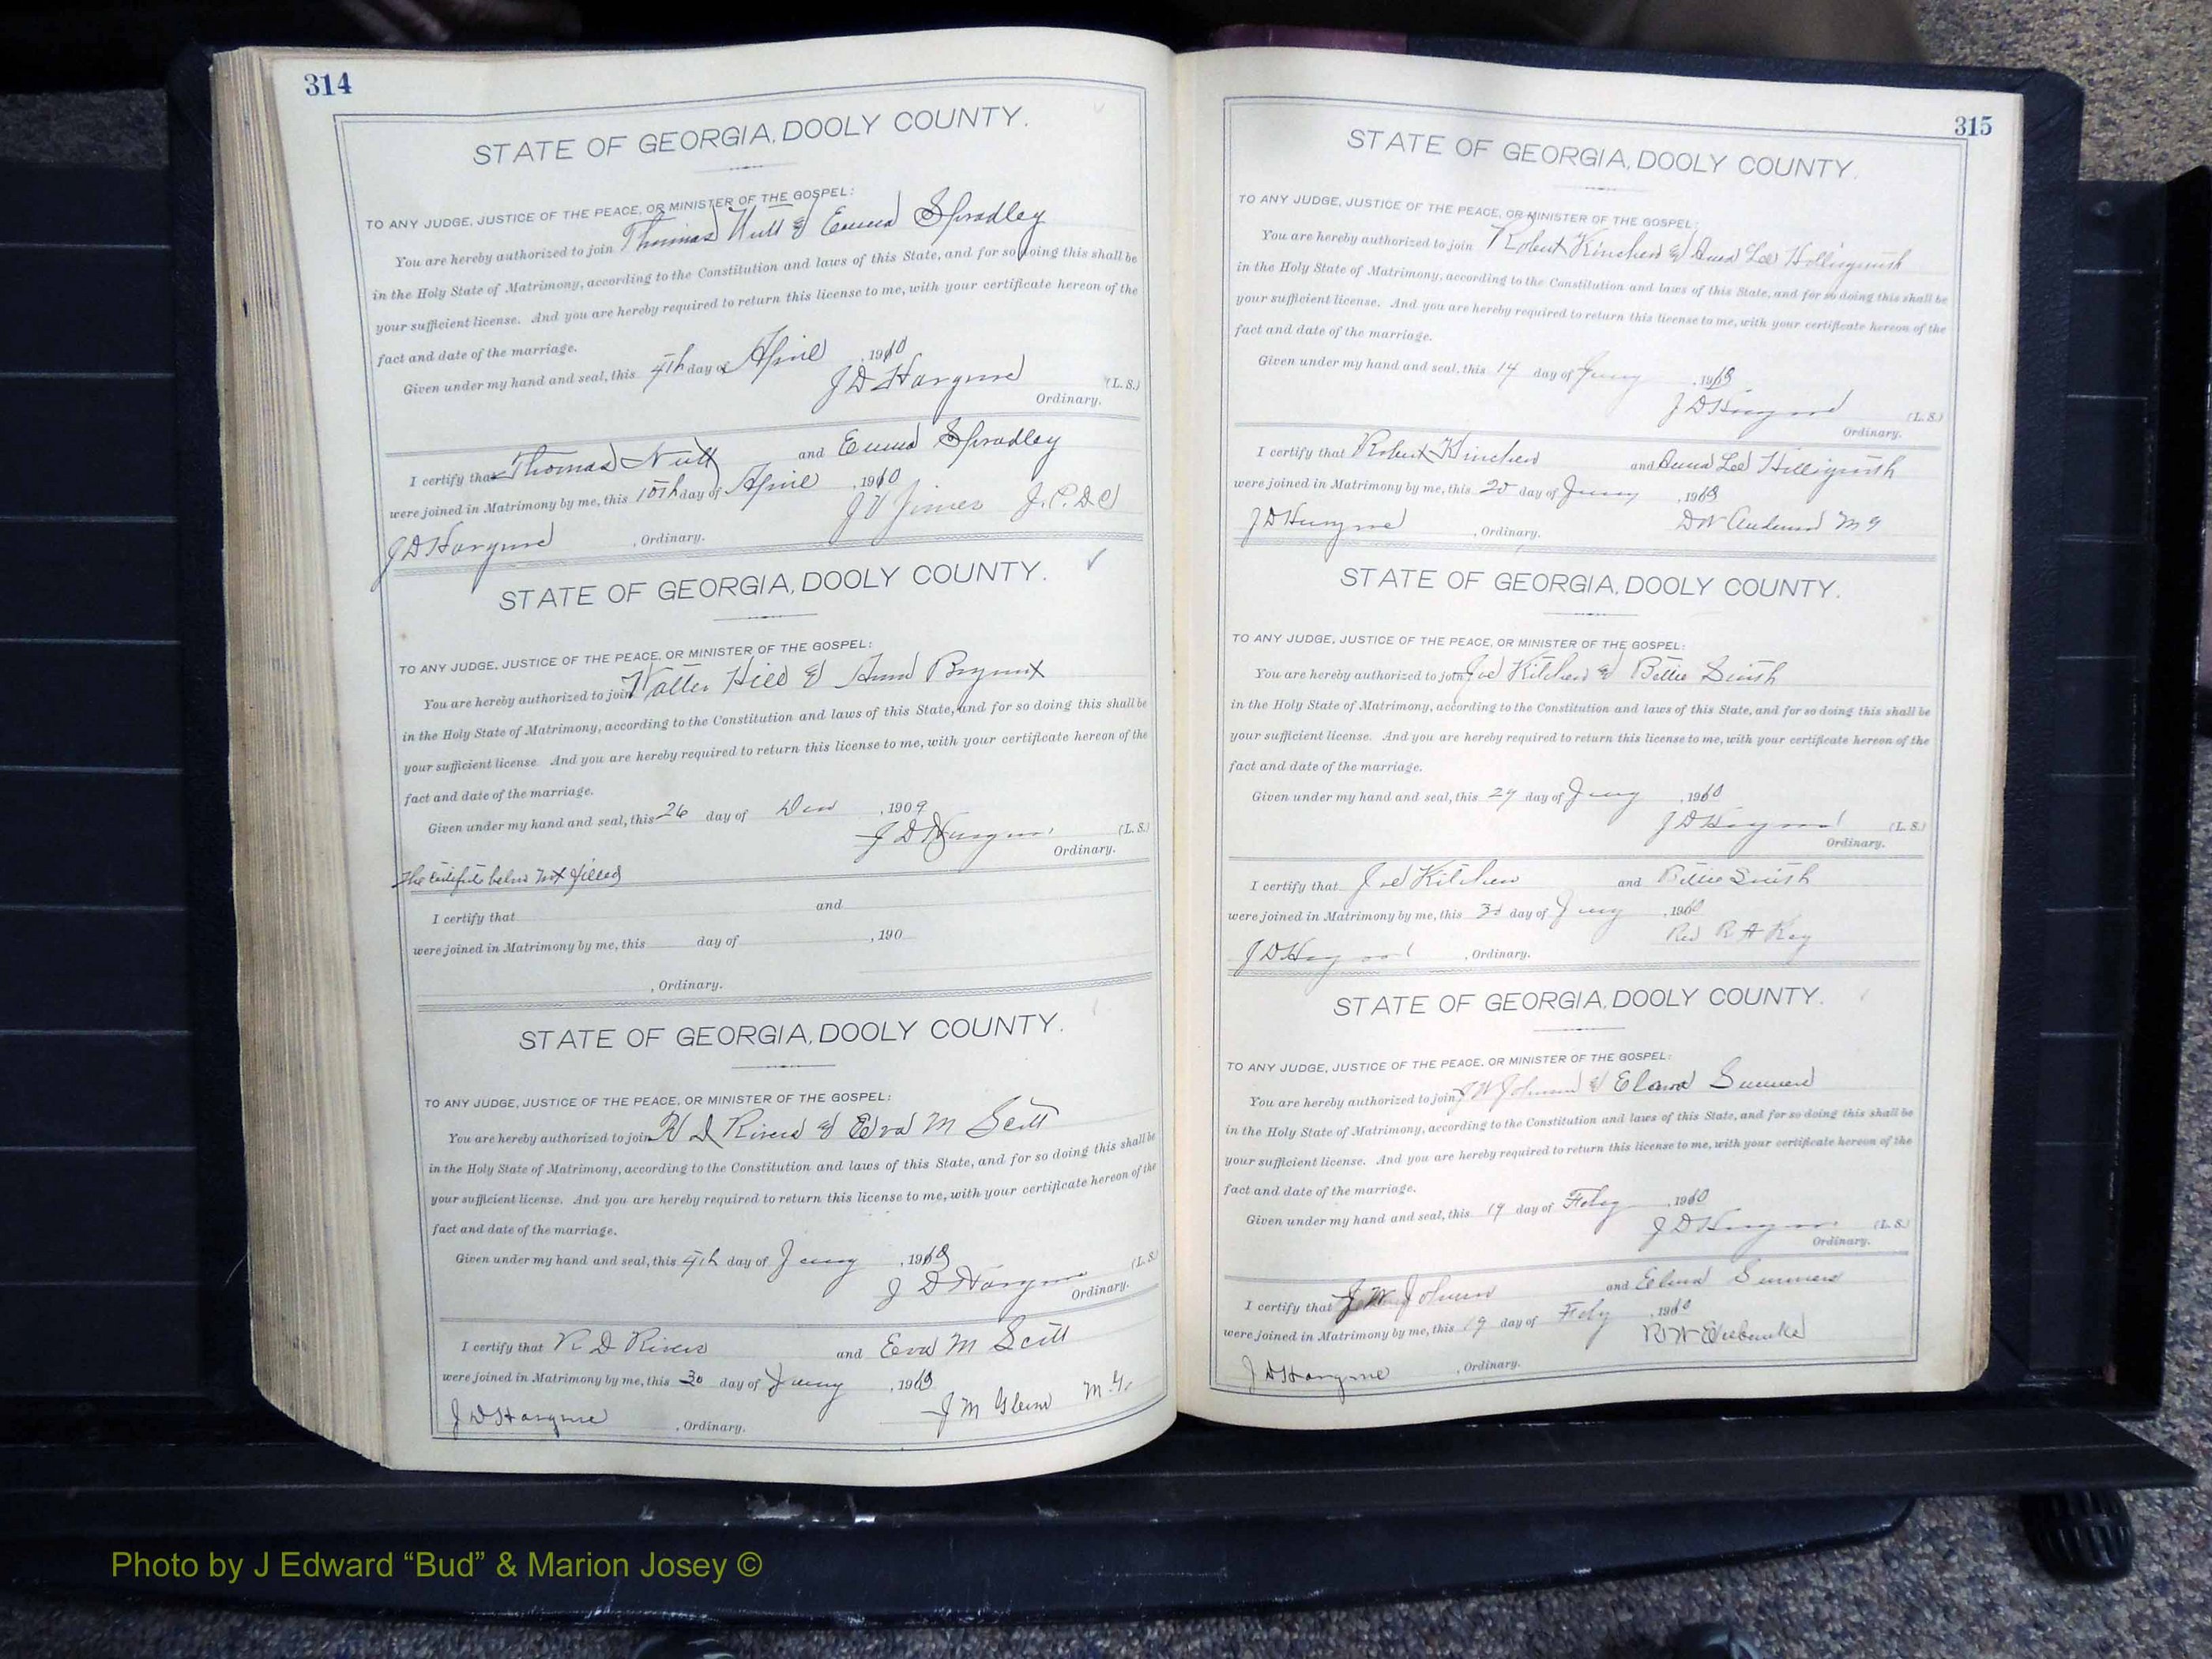 314
STATE OF GEORGIA, DOOLY COUNTY.
TO ANY JUDGE, JUSTICE OF THE PEACE, OR MINISTER OF THE GOSPEL:
You are hereby authorized to join Thomas Nutt & Emma Spradley
in the Holy State of Matrimony, according to the Constitution and laws of this State, and for so doing this shall be
your sufficient license. And you are hereby required to return this license to me, with your certificate hereon of the
fact and date of the marriage.
Given under my hand and seal, this 4th day of April, 1910
J D Hargrove (L. S.)
Ordinary.
I certify that Thomas Nutt and Emma Spradley
were joined in Matrimony by me, this 10th day of April, 1910
J. P. D C
J D Hargrove, Ordinary.
STATE OF GEORGIA, DOOLY COUNTY.
TO ANY JUDGE, JUSTICE OF THE PEACE, OR MINISTER OF THE GOSPEL:
You are hereby authorized to join Walter Hill & Bryant
in the Holy State of Matrimony, according to the Constitution and laws of this State, and for so doing this shall be
your sufficient license And you are hereby required to return this license to me, with your certificate hereon of the
fact and date of the marriage.
Given under my hand and seal, this 26 day of, 1909
J D Hargrove (L. S.)
Ordinary.
The below not filled
I certify that and
were joined in Matrimony by me, this day of, 190
, Ordinary.
STATE OF GEORGIA, DOOLY COUNTY.
TO ANY JUDGE, JUSTICE OF THE PEACE, OR MINISTER OF THE GOSPEL:
You are hereby authorized to join R D Rivers & Eva M Scott
in the Holy State of Matrimony, according to the Constitution and laws of this State, and for so doing this shall be
your sufficient license. And you are hereby required to return this license to me, with your certificate hereon of the
fact and date of the marriage.
Given under my hand and seal, this 4th day of Jany, 19
J D Hargrove (L. S.)
Ordinary.
I certify that R D Rivers and Eva M Scott
were joined in Matrimony by me, this 30 day of Jany, 19
J M Glenn M. G.
J D Hargrove, Ordinary.
315
STATE OF GEORGIA, DOOLY COUNTY.
TO ANY JUDGE, JUSTICE OF THE PEACE, OR MINISTER OF THE GOSPEL:
You are hereby authorized to join Robert Kinchen & Anna Lee
in the Holy State of Matrimony, according to the Constitution and laws of this State, and for so doing this shall be
your sufficient license. And you are hereby required to return this license to me, with your certificate hereon of the
fact and date of the marriage.
Given under my hand and seal, this 14 day of Jany, 19
J D Hargrove (L. S.)
Ordinary.
I certify that Robert Kinchen and Anna Lee
were joined in Matrimony by me, this 20 day of Jany, 19
D W Anderson M G
J D Hargrove, Ordinary.
STATE OF GEORGIA, DOOLY COUNTY.
TO ANY JUDGE, JUSTICE OF THE PEACE, OR MINISTER OF THE GOSPEL:
You are hereby authorized to join Joe Kitchen & Bettie Smith
in the Holy State of Matrimony, according to the Constitution and laws of this State, and for so doing this shall be
your sufficient license. And you are hereby required to return this license to me, with your certificate hereon of the
fact and date of the marriage.
Given under my hand and seal, this 29 day of Jany, 1910
J D Hargrove (L. S.)
Ordinary.
I certify that Joe Kitchen and Bettie Smith
were joined in Matrimony by me, this 30 day of Jany, 1910
Rev R A Ray
J D Hargrove, Ordinary.
STATE OF GEORGIA, DOOLY COUNTY.
TO ANY JUDGE, JUSTICE OF THE PEACE, OR MINISTER OF THE GOSPEL:
You are hereby authorized to join J W Johnson & Summers
in the Holy State of Matrimony, according to the Constitution and laws of this State, and for so doing this shall be
your sufficient license. And you are hereby required to return this license to me, with your certificate hereon of the
fact and date of the marriage.
Given under my hand and seal, this 19 day of Feby, 1910
J D Hargrove (L. S.)
Ordinary.
I certify that J W Johnson and Summers
were joined in Matrimony by me, this 19 day of Feby, 1910
J D Hargrove, Ordinary.
Photo by J Edward “Bud” & Marion Josey ©